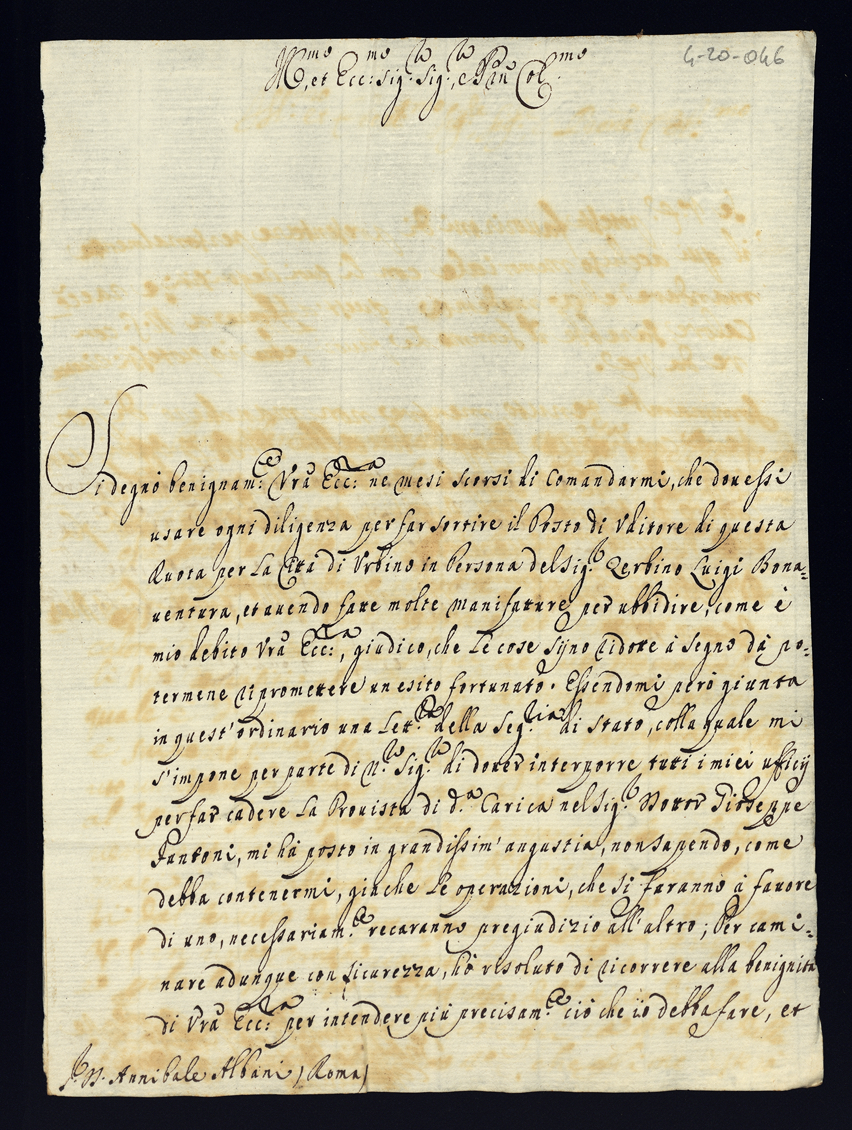 4-20-046
Ill.mo, et Ecc:mo Sig.r Sig.r, e Pñ Col.mo
Si degnò benignam.te Vrã Ecc:za ne mesi scorsi di Comandarmi, che douessi
usare ogni diligenza per far sortire il Posto di Vditore di questa
Ruota per La Città di Vrbino in Persona del Sig.r Zerbino Luigi Bona=
uentura, et auendo fatte molte manifatture per ubbidire, come è
mio debito Vrã Ecc:za, giudico, che Le cose sijno ridotte à segno dà po=
termene ripromettere un esito fortunato. Essendomi però giunta
in quest'ordinario una Lett.ra della Seg.ria di Stato, colla quale mi
s'impone per parte di N.ro Sig.re di douer interporre tutti i miei ufficij
per far cadere La Prouista di d.a Carica nel Sig.r Dottor Gioseppe
Fantoni, mi hà posto in grandissim'angustia, non sapendo, come
debba contenermi, giache Le operazioni, che si faranno à fauore
di uno, necessariam.te recaranno pregiudizio all'altro; Per cami=
nare adunque con sicurezza, hò risoluto di ricorrere alla benignità
di Vrã Ecc:za per intendere più precisam.te ciò che io debba fare, et
D. Annibale Albani (Roma)